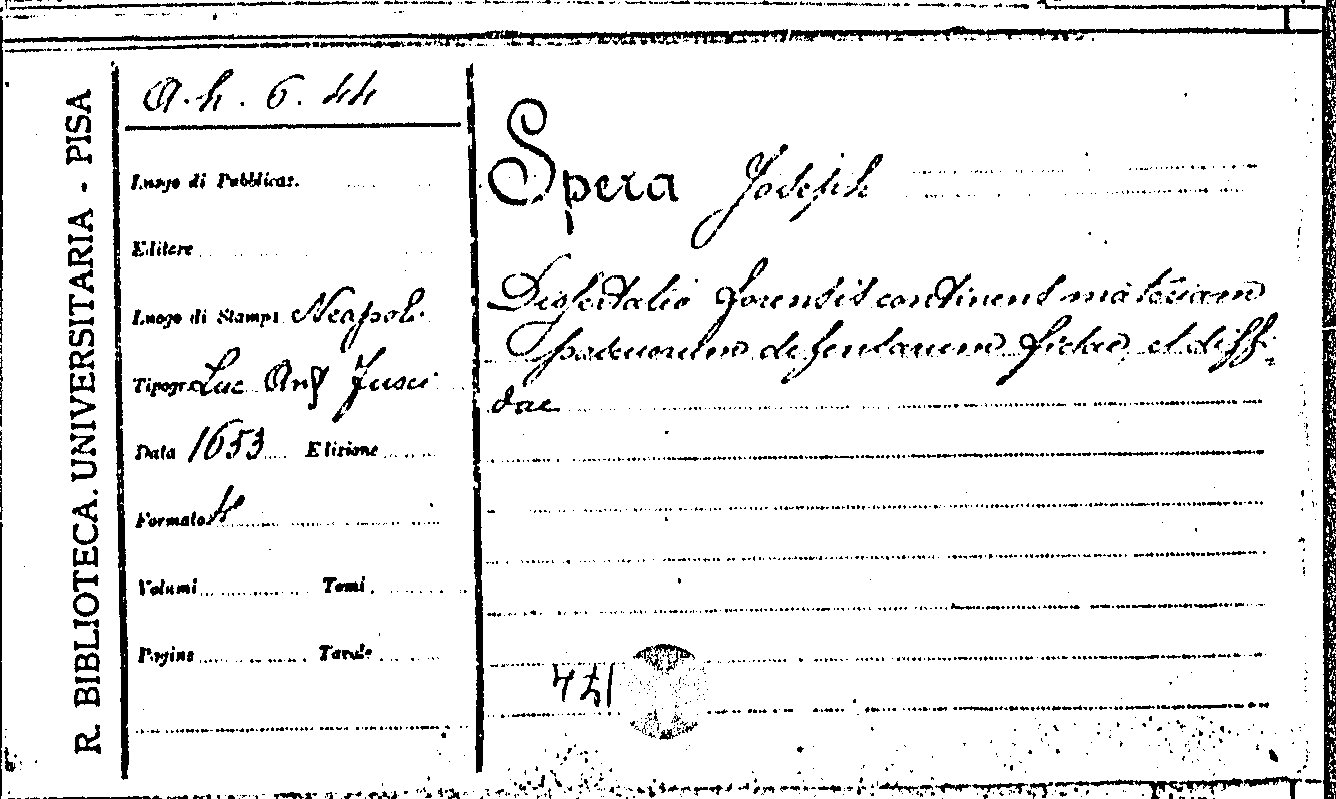 R. BIBLIOTECA. UNIVERSITARIA - PISA
A. h. 6. 44
Luogo di Pubblicaz.
Editore
Luogo di Stampa Neapoli
Tipogr. Luc Ant Fusci
Data 1653 Edizione
Formato 4
Volumi Tomi
Pagine Tavole
Spera Joseph
Dissertatio forensis continens materiam
paduorum defentarum fidae, et diffi-
dae
471